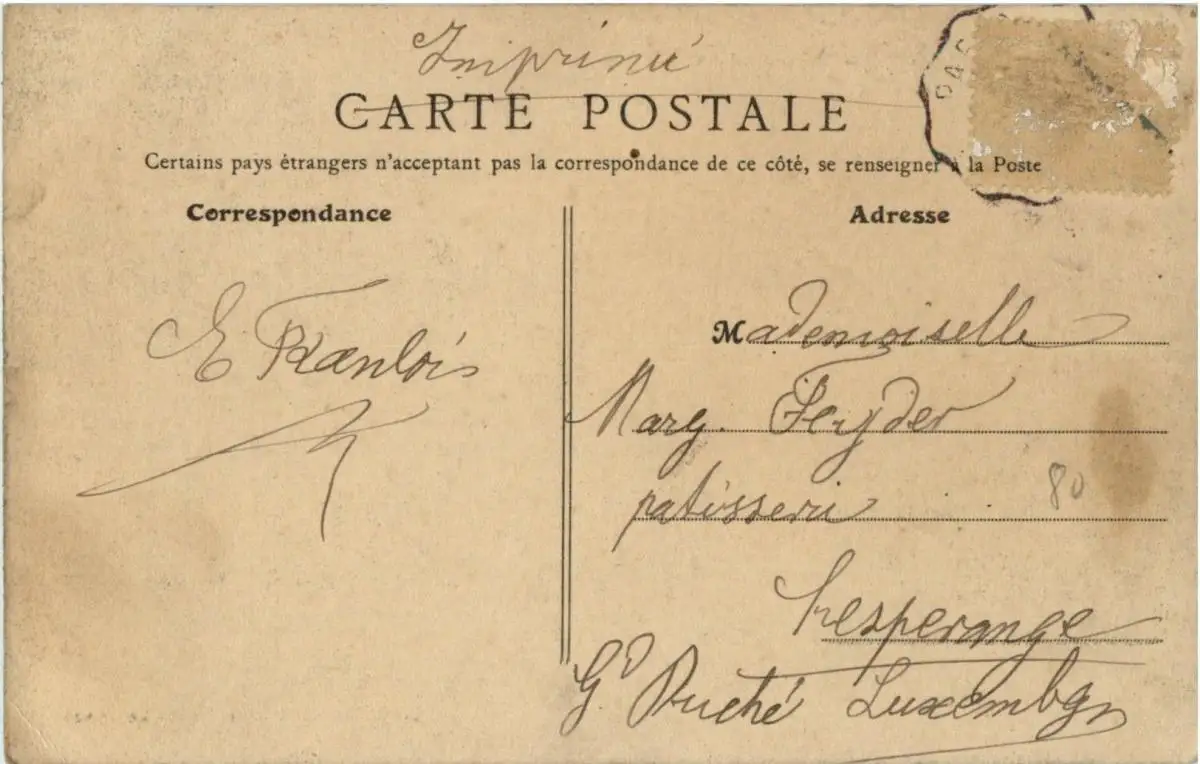 Imprimé
CARTE POSTALE
Certains pays étrangers n'acceptant pas la correspondance de ce côté, se renseigner à la Poste
Correspondance
Adresse
E
Mademoiselle
Marg. Feyder
patisserie
80
Hesperange
Gd Duché Luxembg